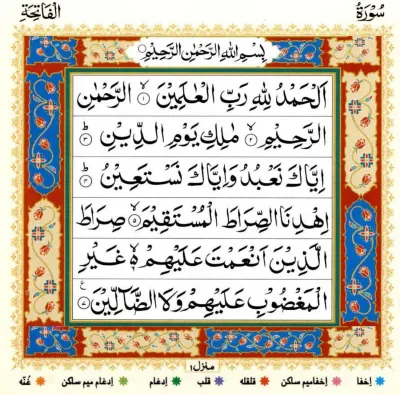 سُوْرَةُ الْفَاتِحَةِ
بِسْمِ اللهِ الرَّحْمٰنِ الرَّحِيْمِ
اَلْحَمْدُ لِلّٰهِ رَبِّ الْعٰلَمِيْنَ ۙ﴿۱﴾ الرَّحْمٰنِ
الرَّحِيْمِ ۙ﴿۲﴾ مٰلِكِ يَوْمِ الدِّيْنِ ؕ﴿۳﴾
اِيَّاكَ نَعْبُدُ وَاِيَّاكَ نَسْتَعِيْنُ ؕ﴿۴﴾
اِهْدِنَا الصِّرَاطَ الْمُسْتَقِيْمَ ۙ﴿۵﴾ صِرَاطَ
الَّذِيْنَ اَنْعَمْتَ عَلَيْهِمْ ۙ۬ غَيْرِ
الْمَغْضُوْبِ عَلَيْهِمْ وَلَا الضَّآلِّيْنَ
منزل ۱
اِخفا اِخفامیم ساکن قلقله قلب اِدغام اِدغام میم ساکن غُنّه